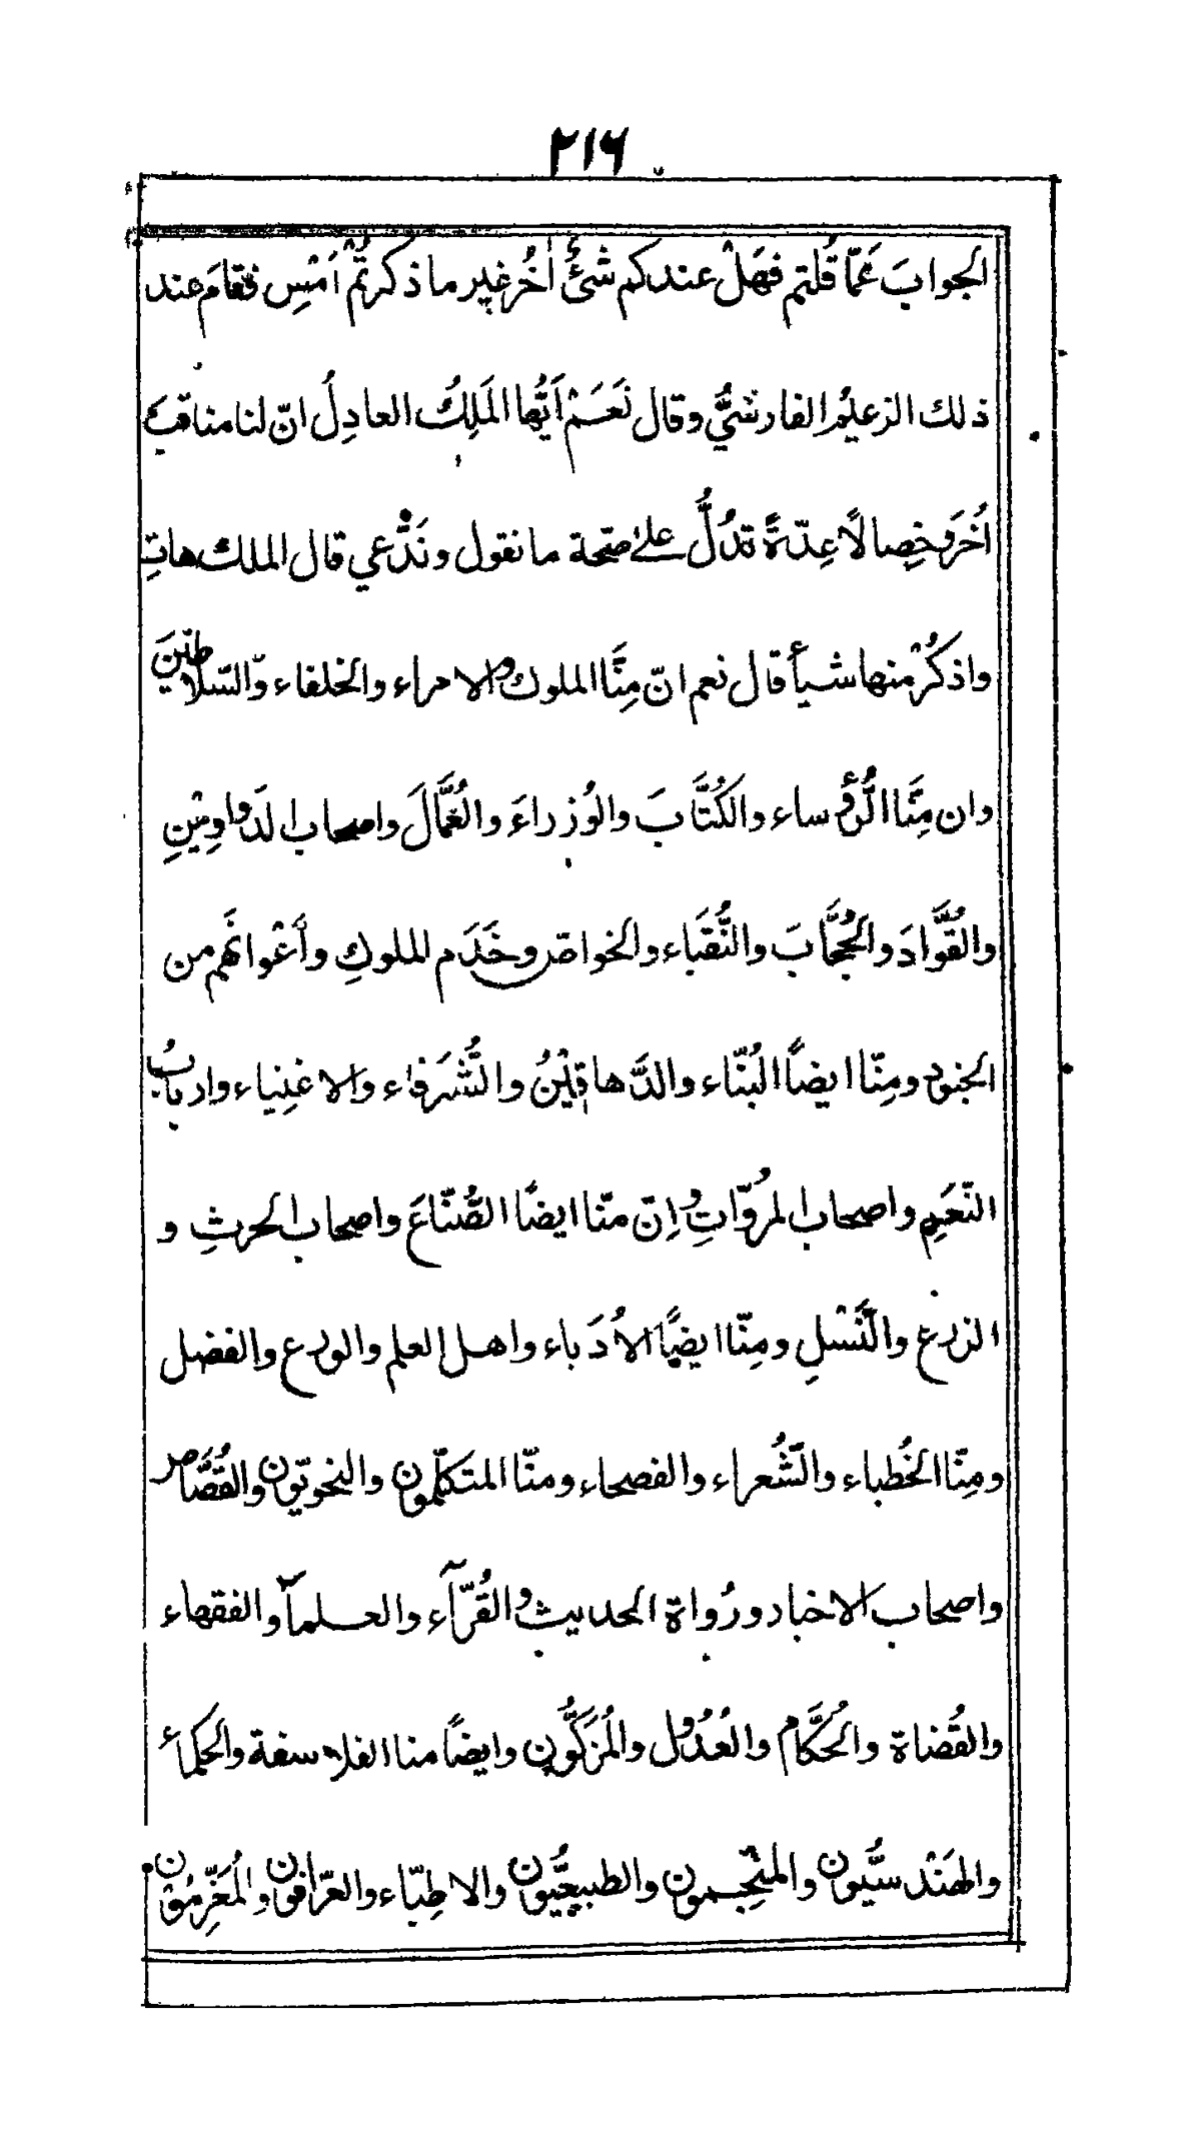 ٢١٦
الجوابَ عَمّا قُلتم فهَلْ عندكم شئٌ اٰخُر غير ما ذكرتُمْ اَمْسِ فقامَ عند
ذلك الزعيم الفارسيُّ وقال نَعَمْ اَيُّها المَلِكُ العادِلُ انّ لنا مناقبَ
اُخَرَ وخِصالًا عِدّةً تدُلُّ علىٰ صحّة ما نقول ونَدّعي قال الملك هاتِ
واذكُرْ منها شيأً قال نعم انّ مِنَّا الملوك والامراء والخلفاء والسّلاطينَ
وان مِنَّا الرُّؤساء والكُتَّابَ والوُزراءَ والعُمَّالَ واصحاب الدَواوِيْنِ
والقُوَّادَ والحُجَّابَ والنُّقَباء والخواصّ وخَدَم الملوكِ وأَعْوانَهم من
الجنود ومِنّا ايضاً البُنّاء والدَّهاقِيْنُ والشُّرَفاء والاغنِياء وارباب
النّعَيمِ واصحاب المرُوّاتِ وإنّ منّا ايضاً الصُّنّاعَ واصحاب الحرثِ و
الزرع والنَّسْلِ ومِنّا ايضاً الأُدَباء واهل العلم والورع والفضل
ومِنّا الخُطباء والشُّعراء والفصحاء ومنّا المتكلّمون والنحويّون والقُصَّاص
واصحاب الاخبار ورُواة الحديث والقُرّآء والعلمآ والفقهاء
والقُضاة والحُكَّام والعُدُول والمُزَكُّون وايضاً منا الفلاسفة والحكمأ
والهَنْدسيُّون والمنَجِّمون والطبيعِيُّون والاطِبّاء والعرّافون والمُعَزِّمُون